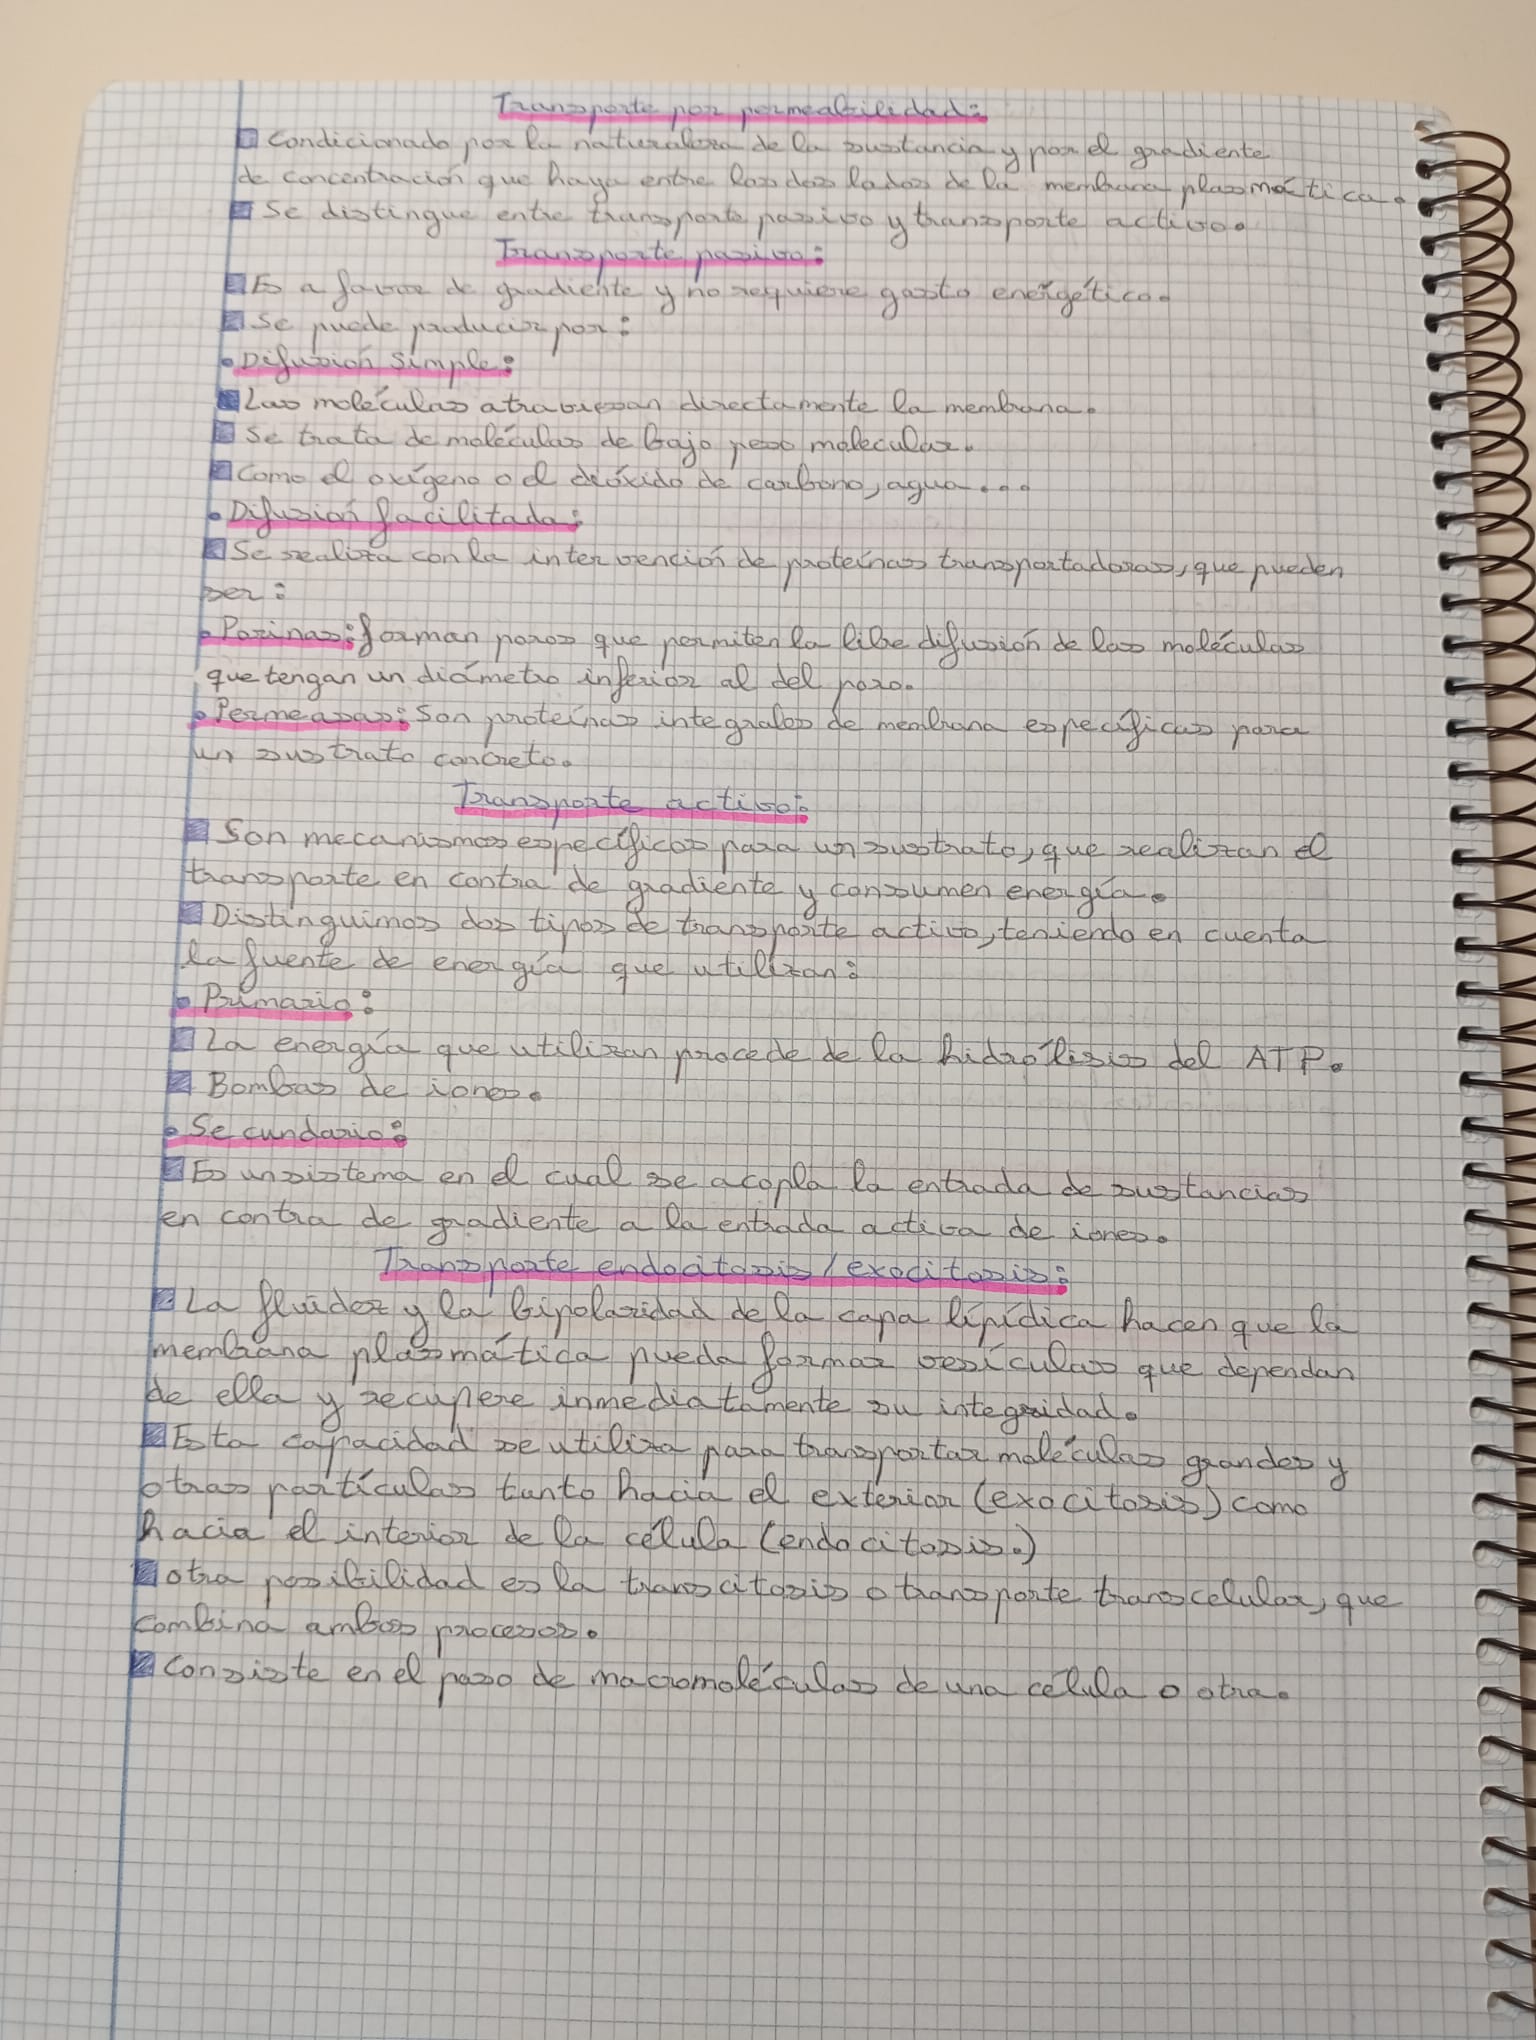 Transporte por permeabilidad:
Condicionado por la naturaleza de la sustancia y por el gradiente
de concentración que haya entre los dos lados de la membrana plasmática.
Se distingue entre transporte pasivo y transporte activo.
Transporte pasivo:
Es a favor de gradiente y no requiere gasto energético.
Se puede producir por:
• Difusión simple:
Las moléculas atraviesan directamente la membrana.
Se trata de moléculas de bajo peso molecular.
Como el oxígeno o el dióxido de carbono, agua...
• Difusión facilitada:
Se realiza con la intervención de proteínas transportadoras, que pueden
ser:
• Porinas: forman poros que permiten la libre difusión de las moléculas
que tengan un diámetro inferior al del poro.
• Permeasas: Son proteínas integrales de membrana específicas para
un sustrato concreto.
Transporte activo:
Son mecanismos específicos para un sustrato, que realizan el
transporte en contra de gradiente y consumen energía.
Distinguimos dos tipos de transporte activo, teniendo en cuenta
la fuente de energía que utilizan:
• Primario:
La energía que utilizan procede de la hidrólisis del ATP.
Bombas de iones.
• Secundario:
Es un sistema en el cual se acopla la entrada de sustancias
en contra de gradiente a la entrada activa de iones.
Transporte endocitosis/exocitosis:
La fluidez y la bipolaridad de la capa lipídica hacen que la
membrana plasmática pueda formar vesículas que dependan
de ella y recupere inmediatamente su integridad.
Esta capacidad se utiliza para transportar moléculas grandes y
otras partículas tanto hacia el exterior (exocitosis) como
hacia el interior de la célula (endocitosis.)
otra posibilidad es la transcitosis o transporte transcelular, que
combina ambos procesos.
Consiste en el paso de macromoléculas de una célula o otra.